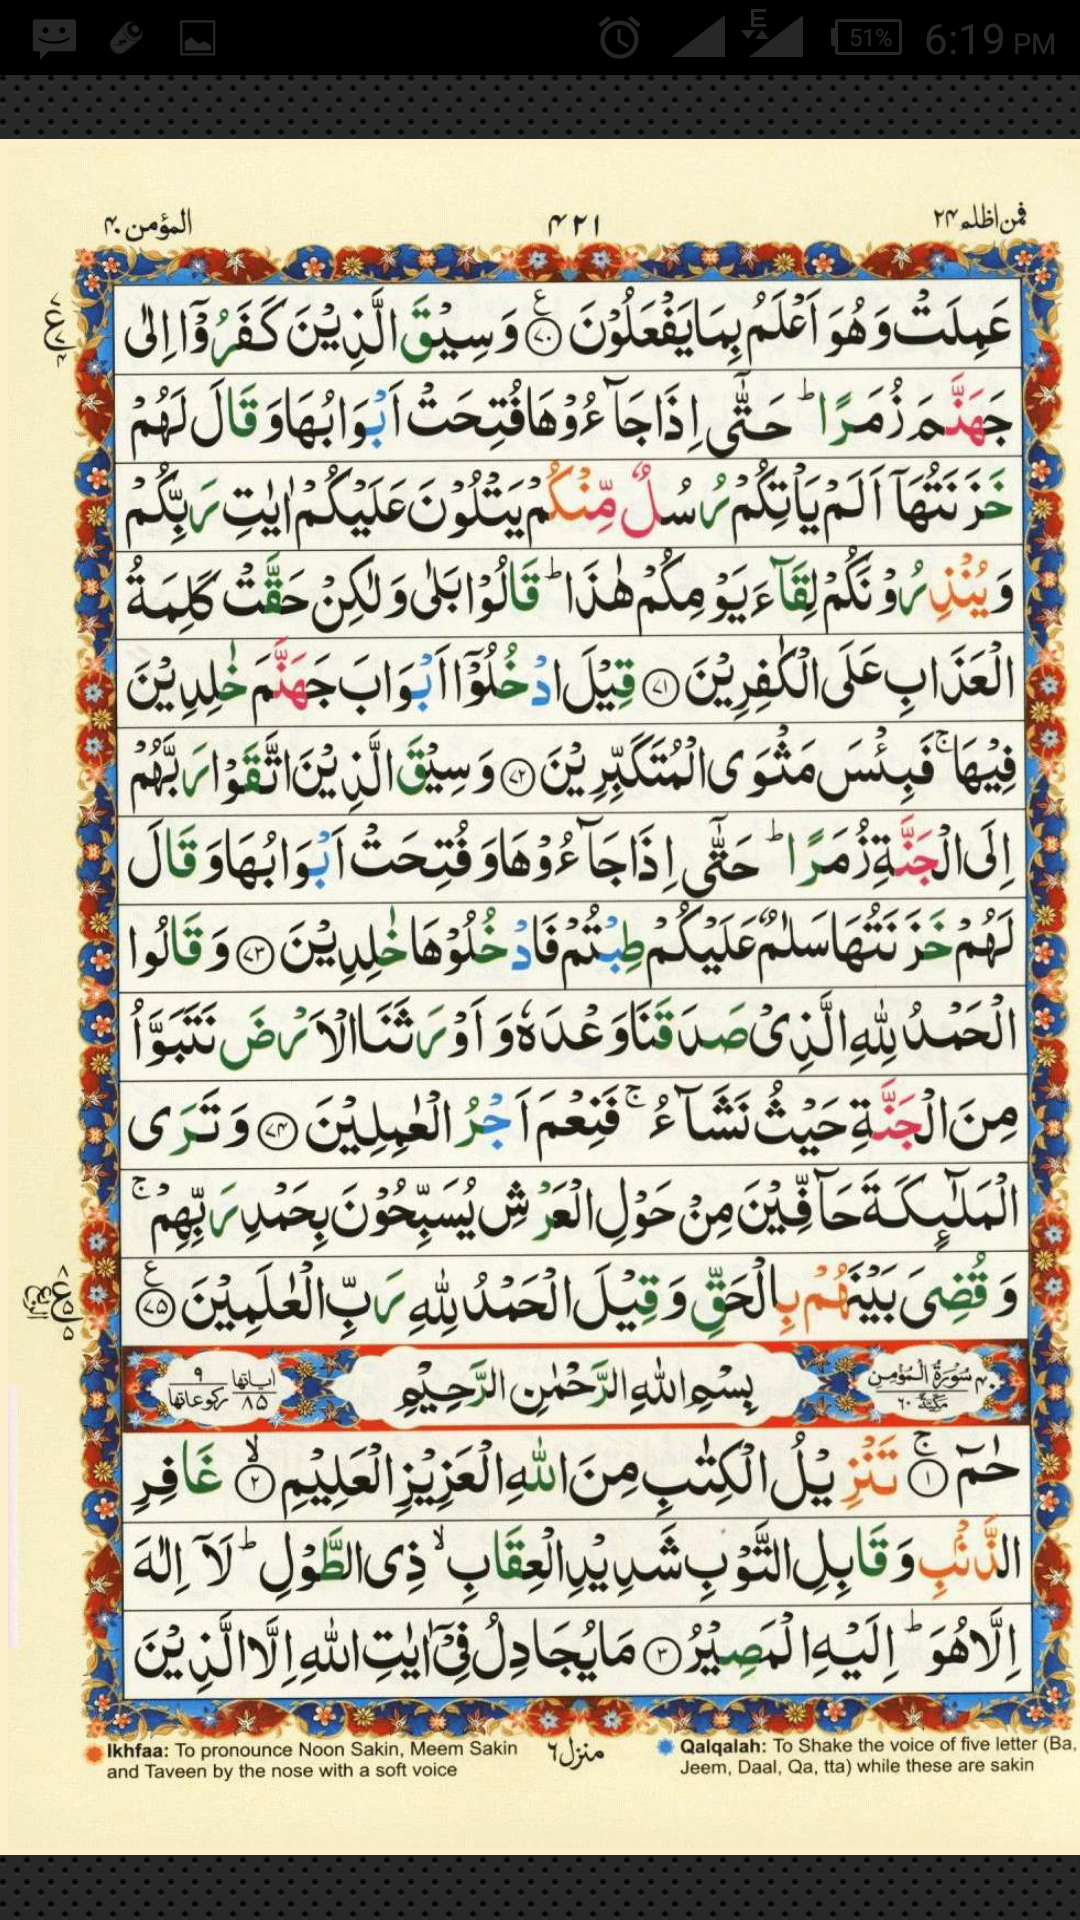 51% 6:19 PM
E
المؤمن ۴۰ ۴۲۱ فمن اظلم ۲۴
عَمِلَتْ وَهُوَ اَعْلَمُ بِمَا يَفْعَلُوْنَ ﴿۷۰﴾ وَسِيْقَ الَّذِيْنَ كَفَرُوْۤا اِلٰى
جَهَنَّمَ زُمَرًا ؕ حَتّٰۤى اِذَا جَآءُوْهَا فُتِحَتْ اَبْوَابُهَا وَقَالَ لَهُمْ
خَزَنَتُهَاۤ اَلَمْ يَاْتِكُمْ رُسُلٌ مِّنْكُمْ يَتْلُوْنَ عَلَيْكُمْ اٰيٰتِ رَبِّكُمْ
وَيُنْذِرُوْنَكُمْ لِقَآءَ يَوْمِكُمْ هٰذَا ؕ قَالُوْا بَلٰى وَلٰكِنْ حَقَّتْ كَلِمَةُ
الْعَذَابِ عَلَى الْكٰفِرِيْنَ ﴿۷۱﴾ قِيْلَ ادْخُلُوْۤا اَبْوَابَ جَهَنَّمَ خٰلِدِيْنَ
فِيْهَا ۚ فَبِئْسَ مَثْوَى الْمُتَكَبِّرِيْنَ ﴿۷۲﴾ وَسِيْقَ الَّذِيْنَ اتَّقَوْا رَبَّهُمْ
اِلَى الْجَنَّةِ زُمَرًا ؕ حَتّٰۤى اِذَا جَآءُوْهَا وَفُتِحَتْ اَبْوَابُهَا وَقَالَ
لَهُمْ خَزَنَتُهَا سَلٰمٌ عَلَيْكُمْ طِبْتُمْ فَادْخُلُوْهَا خٰلِدِيْنَ ﴿۷۳﴾ وَقَالُوا
الْحَمْدُ لِلّٰهِ الَّذِيْ صَدَقَنَا وَعْدَهٗ وَاَوْرَثَنَا الْاَرْضَ نَتَبَوَّاُ
مِنَ الْجَنَّةِ حَيْثُ نَشَآءُ ۚ فَنِعْمَ اَجْرُ الْعٰمِلِيْنَ ﴿۷۴﴾ وَتَرَى
الْمَلٰٓئِكَةَ حَآفِّيْنَ مِنْ حَوْلِ الْعَرْشِ يُسَبِّحُوْنَ بِحَمْدِ رَبِّهِمْ ۚ
وَقُضِيَ بَيْنَهُمْ بِالْحَقِّ وَقِيْلَ الْحَمْدُ لِلّٰهِ رَبِّ الْعٰلَمِيْنَ ﴿۷۵﴾
۴۰ سُوْرَةُ الْمُؤْمِنِ مَكِّيَّةٌ ۶۰ بِسْمِ اللّٰهِ الرَّحْمٰنِ الرَّحِيْمِ اٰياتها ۸۵ ركوعاتها ۹
حٰمٓ ﴿۱﴾ۚ تَنْزِيْلُ الْكِتٰبِ مِنَ اللّٰهِ الْعَزِيْزِ الْعَلِيْمِ ﴿۲﴾ۙ غَافِرِ
الذَّنْۢبِ وَقَابِلِ التَّوْبِ شَدِيْدِ الْعِقَابِ ۙ ذِى الطَّوْلِ ؕ لَاۤ اِلٰهَ
اِلَّا هُوَ ؕ اِلَيْهِ الْمَصِيْرُ ﴿۳﴾ مَا يُجَادِلُ فِيْۤ اٰيٰتِ اللّٰهِ اِلَّا الَّذِيْنَ
Ikhfaa: To pronounce Noon Sakin, Meem Sakin
and Taveen by the nose with a soft voice
منزل ۶
Qalqalah: To Shake the voice of five letter (Ba,
Jeem, Daal, Qa, tta) while these are sakin